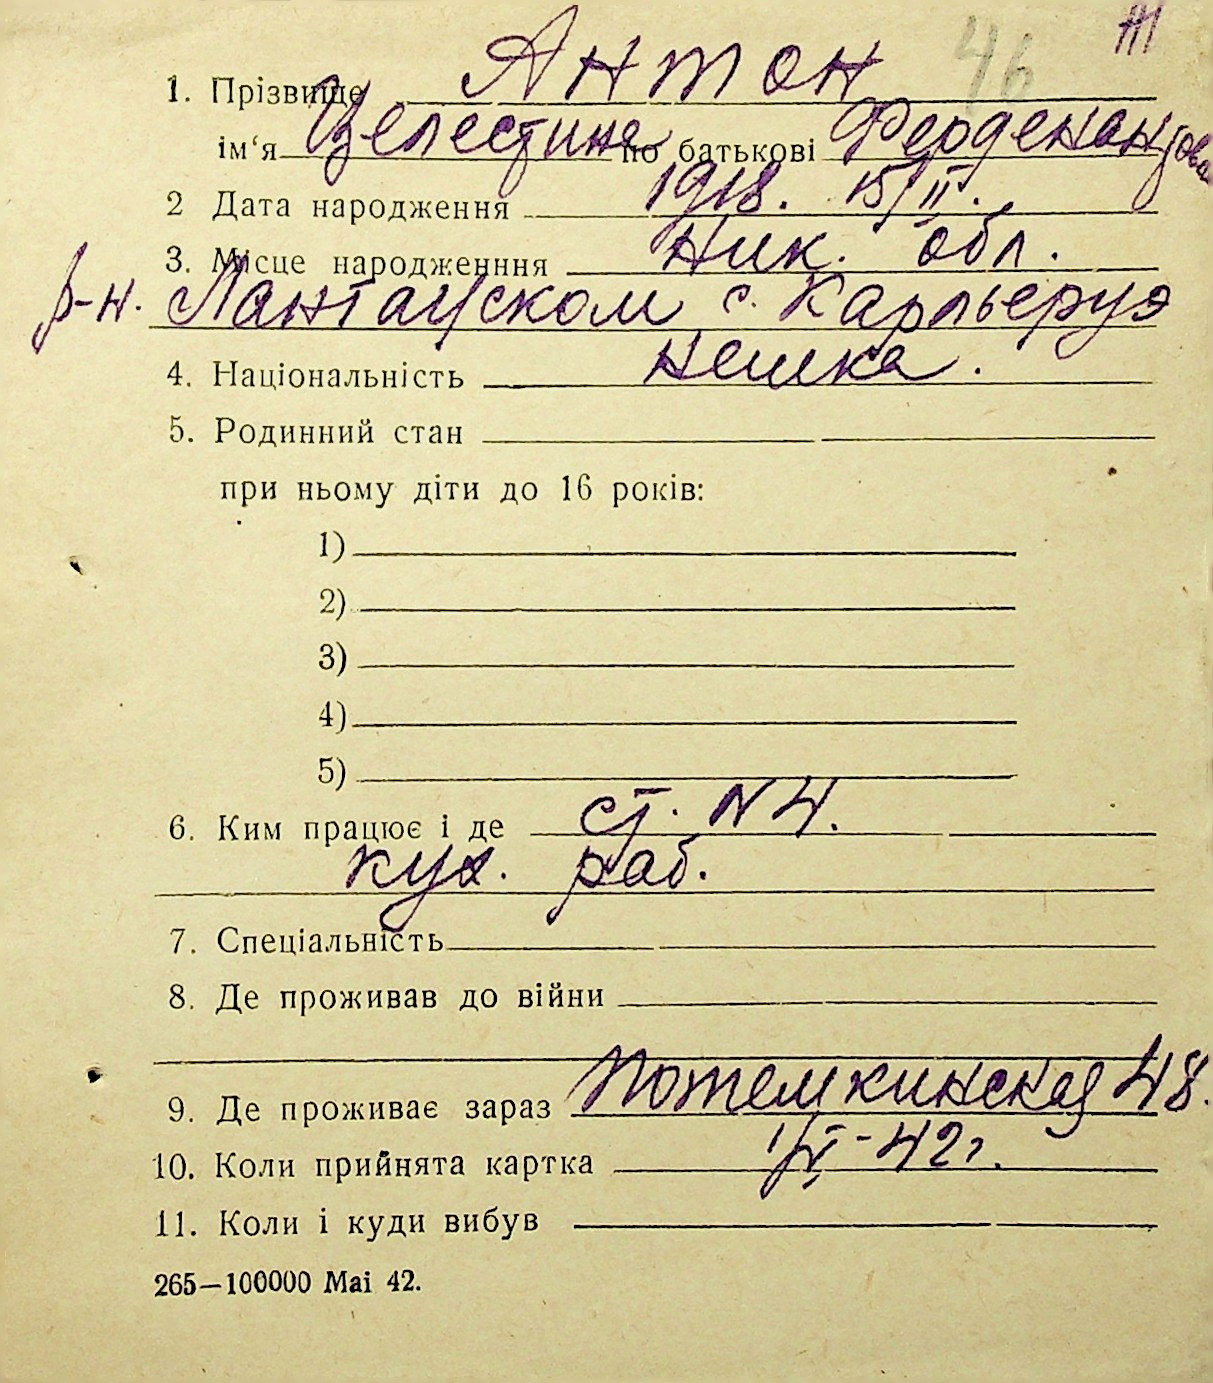 46 Ж
1. Прізвище Антон
ім‘я Целестина по батькові Ферденантова
2 Дата народження 1918. 15/II.
3. Місце народженння Ник. обл.
р-н. Лантауском с. Карльеруэ
4. Національність немка.
5. Родинний стан
при ньому діти до 16 років:
1)
2)
3)
4)
5)
6. Ким працює і де ст. N 4.
кух. раб.
7. Спеціальність
8. Де проживав до війни
9. Де проживає зараз Потемкинская 48.
10. Коли прийнята картка 42г.
11. Коли і куди вибув
265—100000 Mai 42.